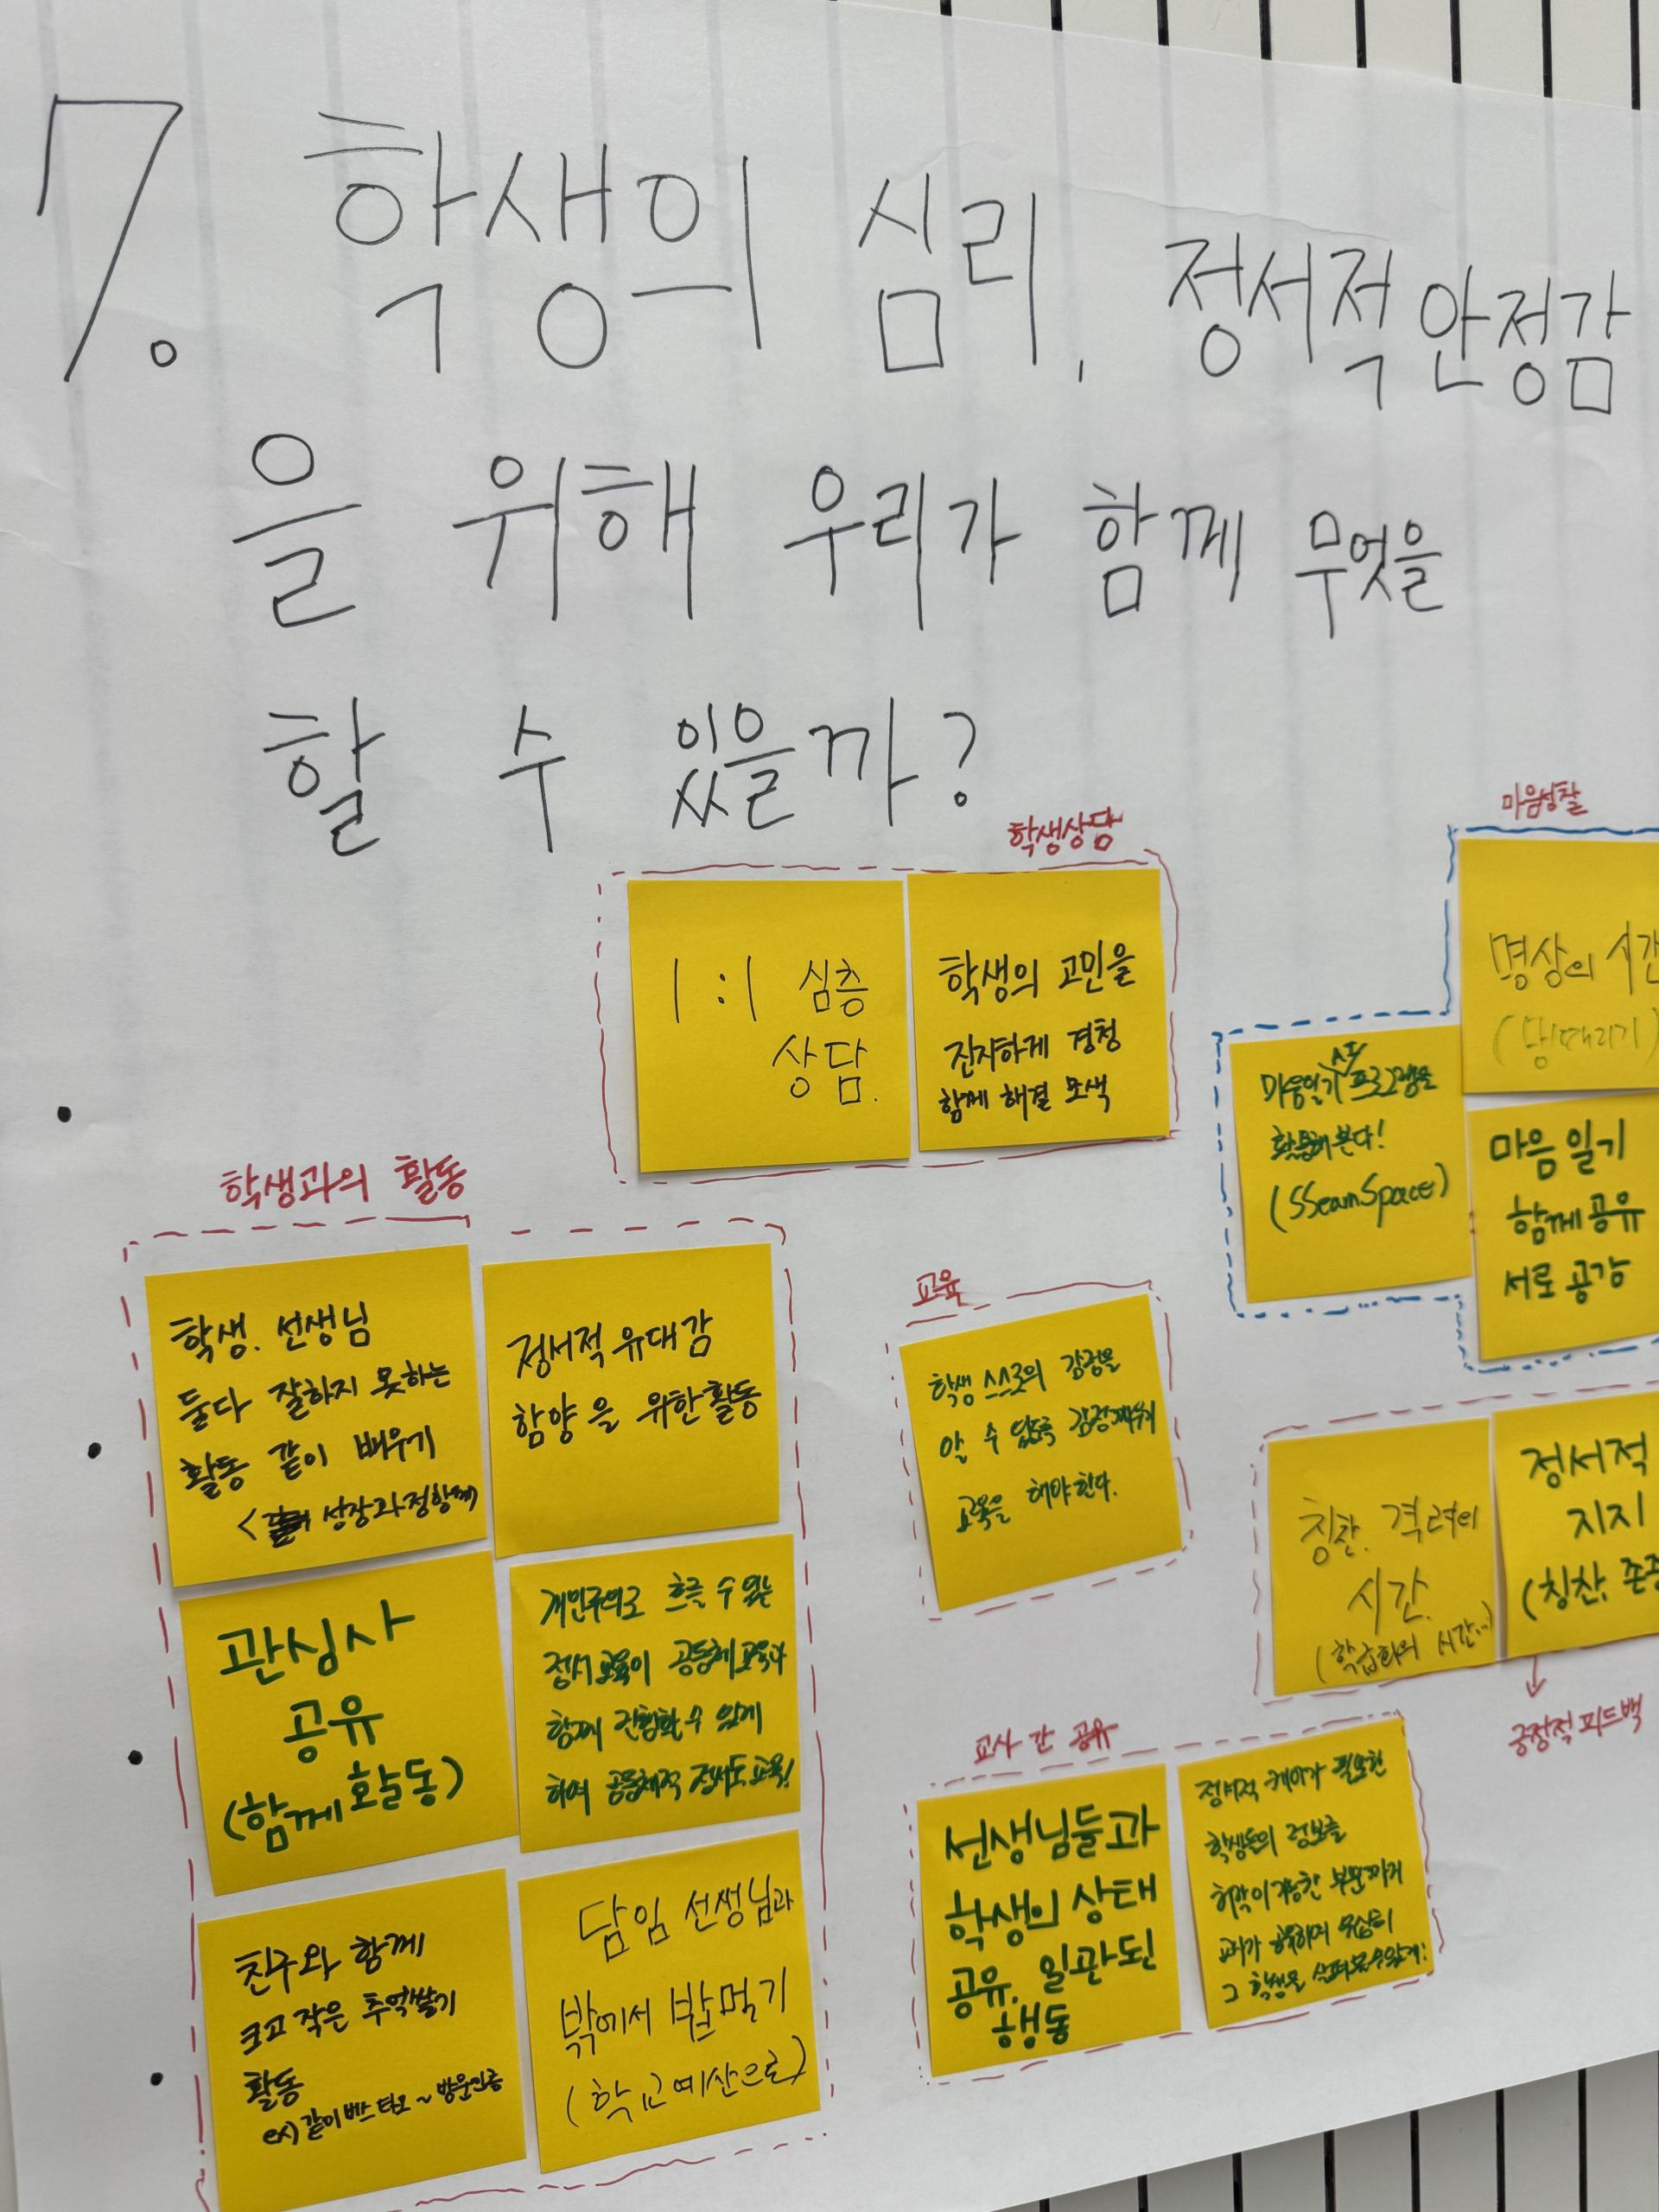 7. 학생의 심리, 정서적 안정감
을 위해 우리가 함께 무엇을
할 수 있을까?
학생상담
1:1 심층
상담.
학생의 고민을
진지하게 경청
함께 해결 모색
마음성찰
명상의 시간
(멍때리기)
마음일기 AI 프로그램을
활용해 본다!
(SSeamSpace)
마음 일기
함께 공유
서로 공감
학생과의 활동
학생. 선생님
둘다 잘하지 못하는
활동 같이 배우기
< 성장과정함께)
정서적 유대감
함양을 위한 활동
관심사
공유
(함께 활동)
개인주의로 흐를 수 있는
정서교육이 공동체 교육과
함께 결합할 수 있게
하여 공동체적 정서도 교육!
친구와 함께
크고 작은 추억쌓기
활동
ex) 같이 베스티모~
담임 선생님과
밖에서 밥먹기
(학교예산으로)
교육
학생 스스로의 감정을
알 수 있도록 감정
교육을 해야 한다.
칭찬. 격려의
시간.
(학급회의 시간...)
정서적
지지
(칭찬, 존중
긍정적 피드백
교사 간 공유
선생님들과
학생의 상태
공유. 일관된
행동
정서적 케어가 필요한
학생들의 정보를
허락이 가능한 부분까지
그 학생을